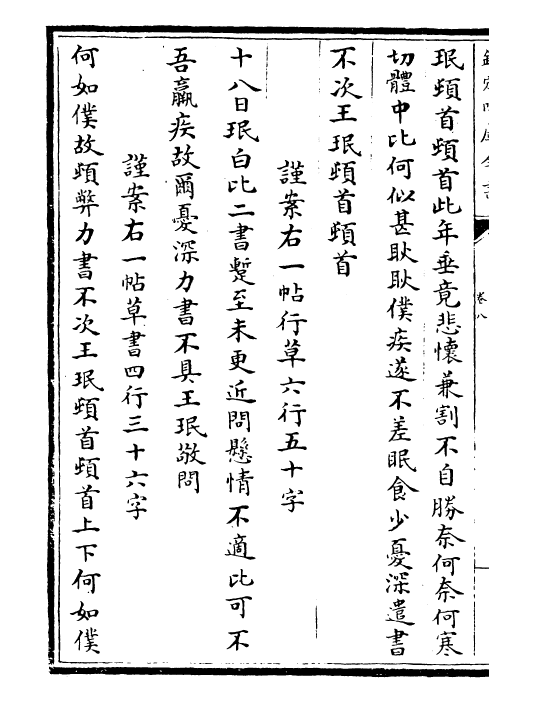 欽定四庫全書
卷八
珉頓首頓首此年垂竟悲懷兼割不自勝奈何奈何寒
切體中比何似甚耿耿僕疾遂不差眠食少憂深遣書
不次王珉頓首頓首
謹案右一帖行草六行五十字
十八日珉白比二書蹔至未更近問懸情不適比可不
吾羸疾故爾憂深力書不具王珉敬問
謹案右一帖草書四行三十六字
何如僕故頓弊力書不次王珉頓首頓首上下何如僕